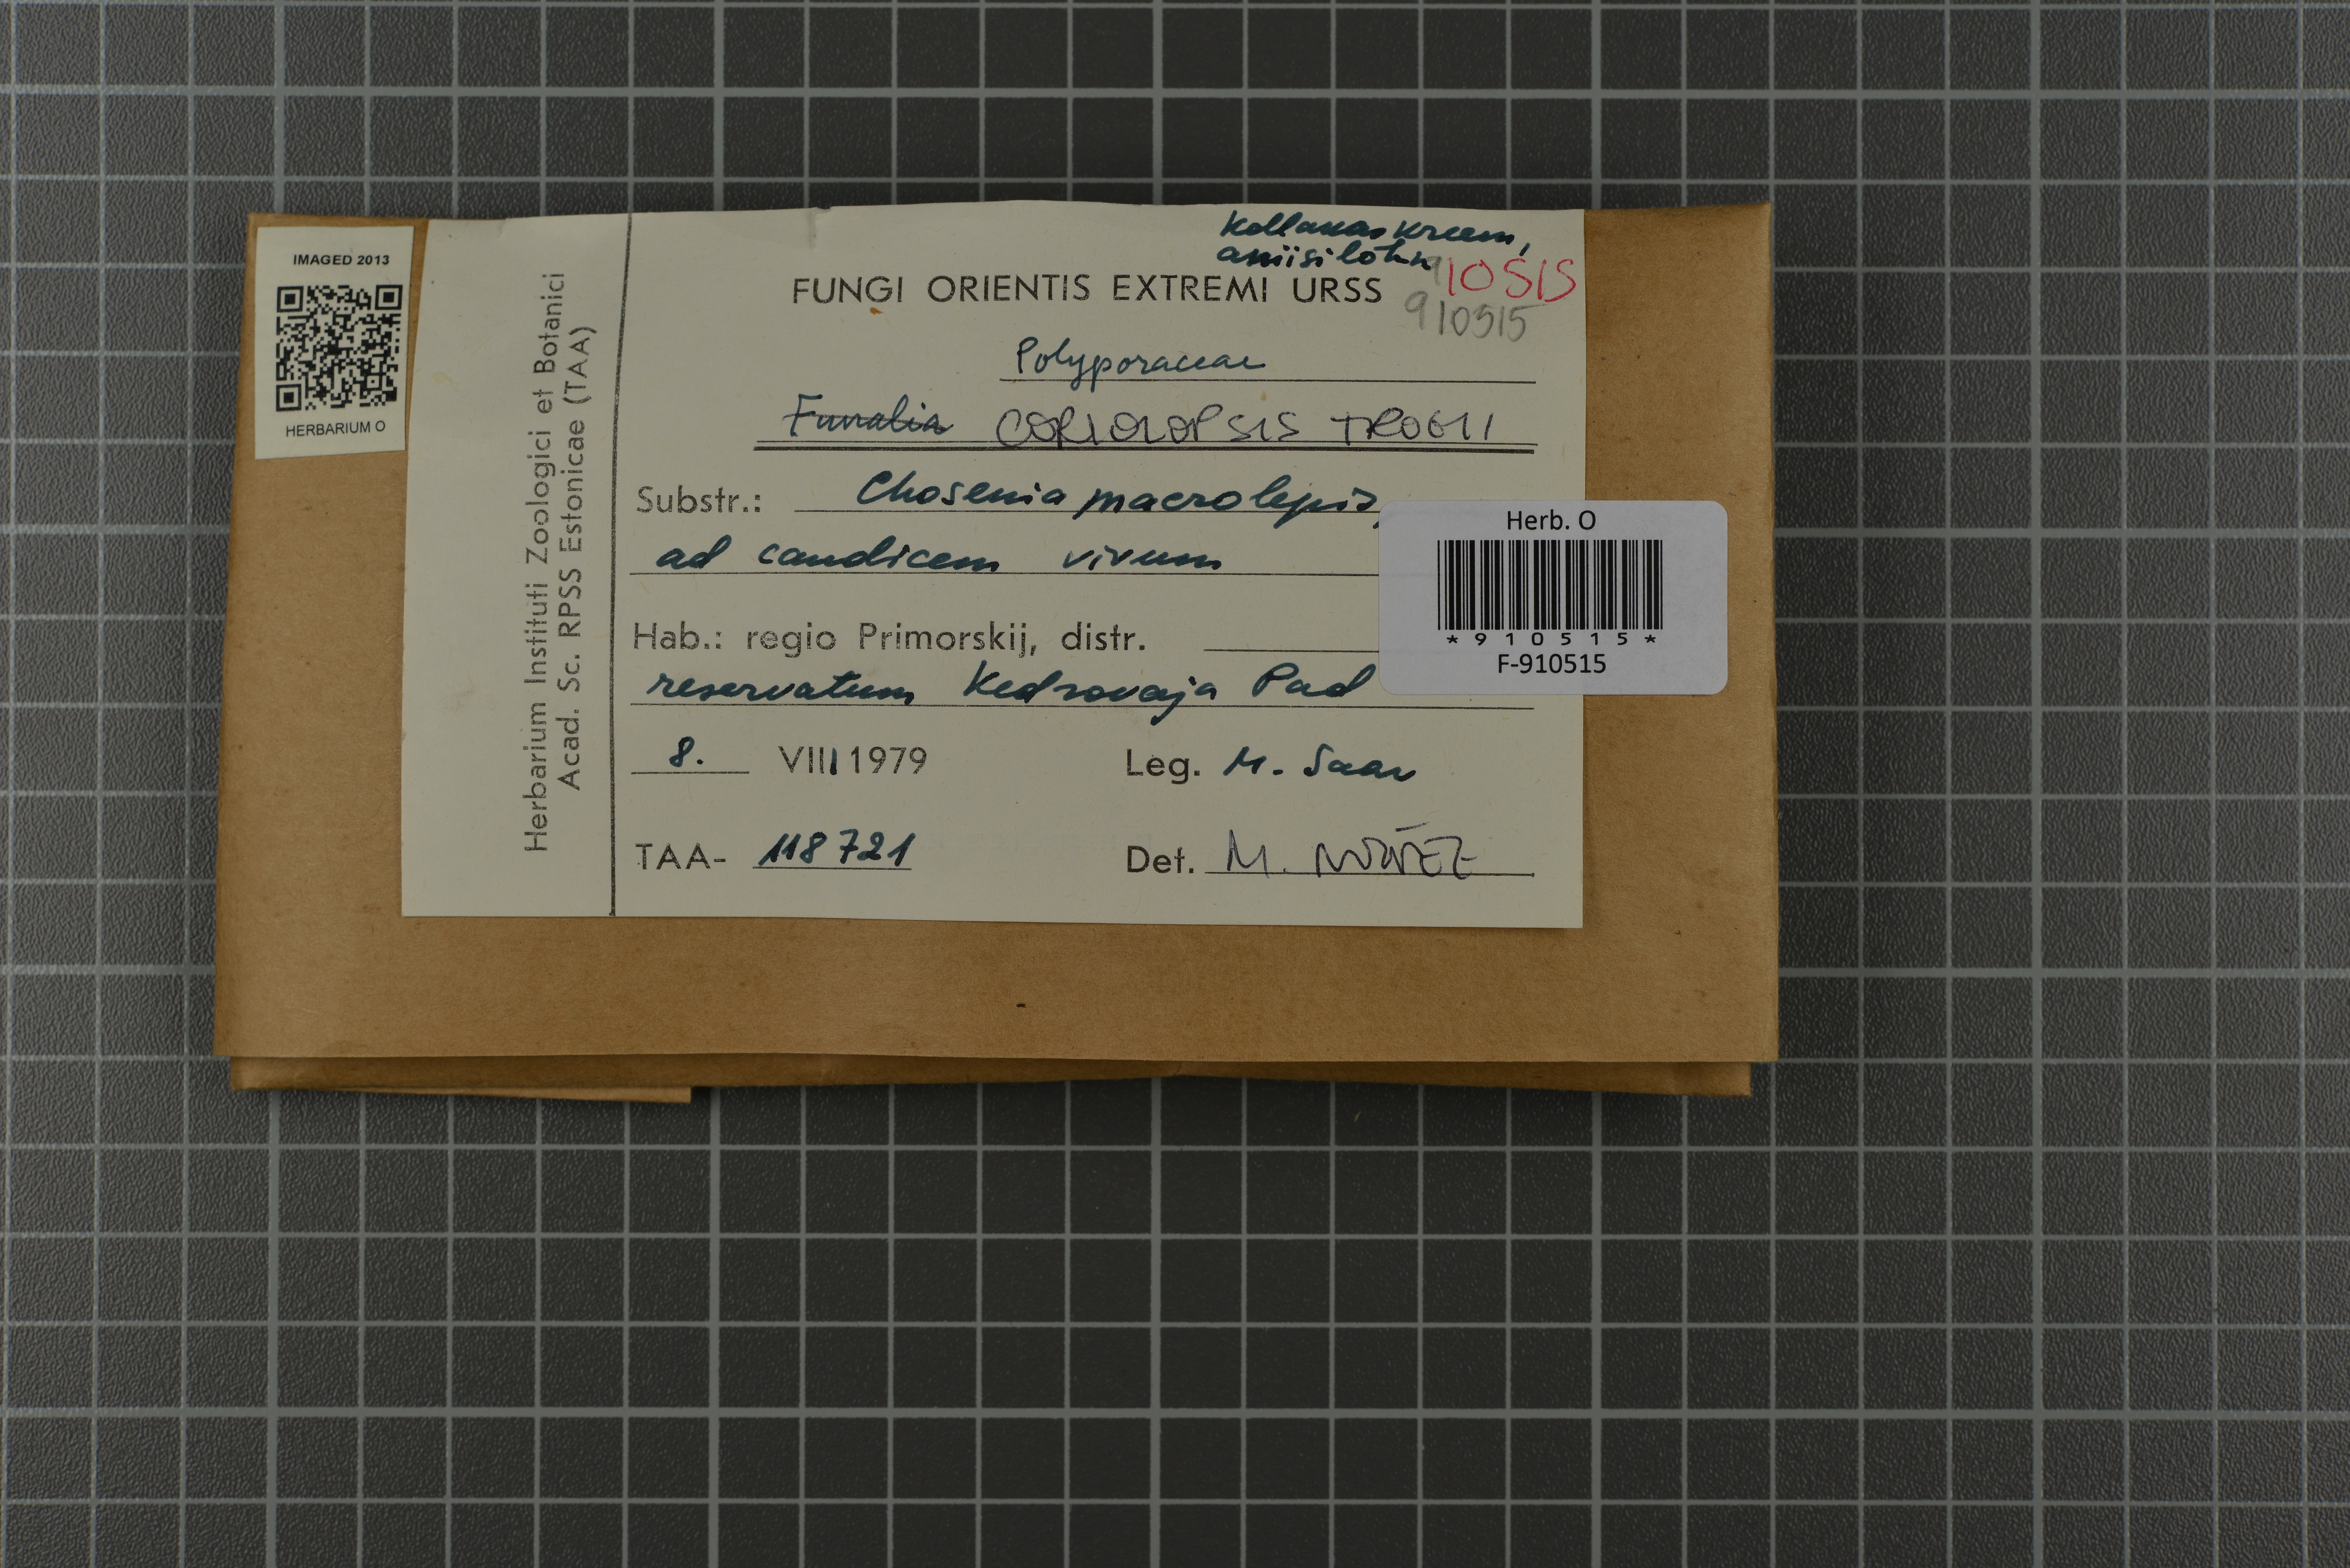 IMAGED 2013
HERBARIUM O
Herbarium Instituti Zoologici et Botanici
Acad. Sc. RPSS Estonicae (TAA)
Kollakas kreem,
aniisilõhn
910515
FUNGI ORIENTIS EXTREMI URSS
910515
Polyporaceae
Funalia CORIOLOPSIS TROGII
Substr.: Chosenia macrolepis,
ad caudicem vivum
Hab.: regio Primorskij, distr.
reservatum Kedrovaja Pad
8. VIII 1979 Leg. M. Saar
TAA- 118721 Det. M. NÚÑEZ
Herb. O
*910515*
F-910515